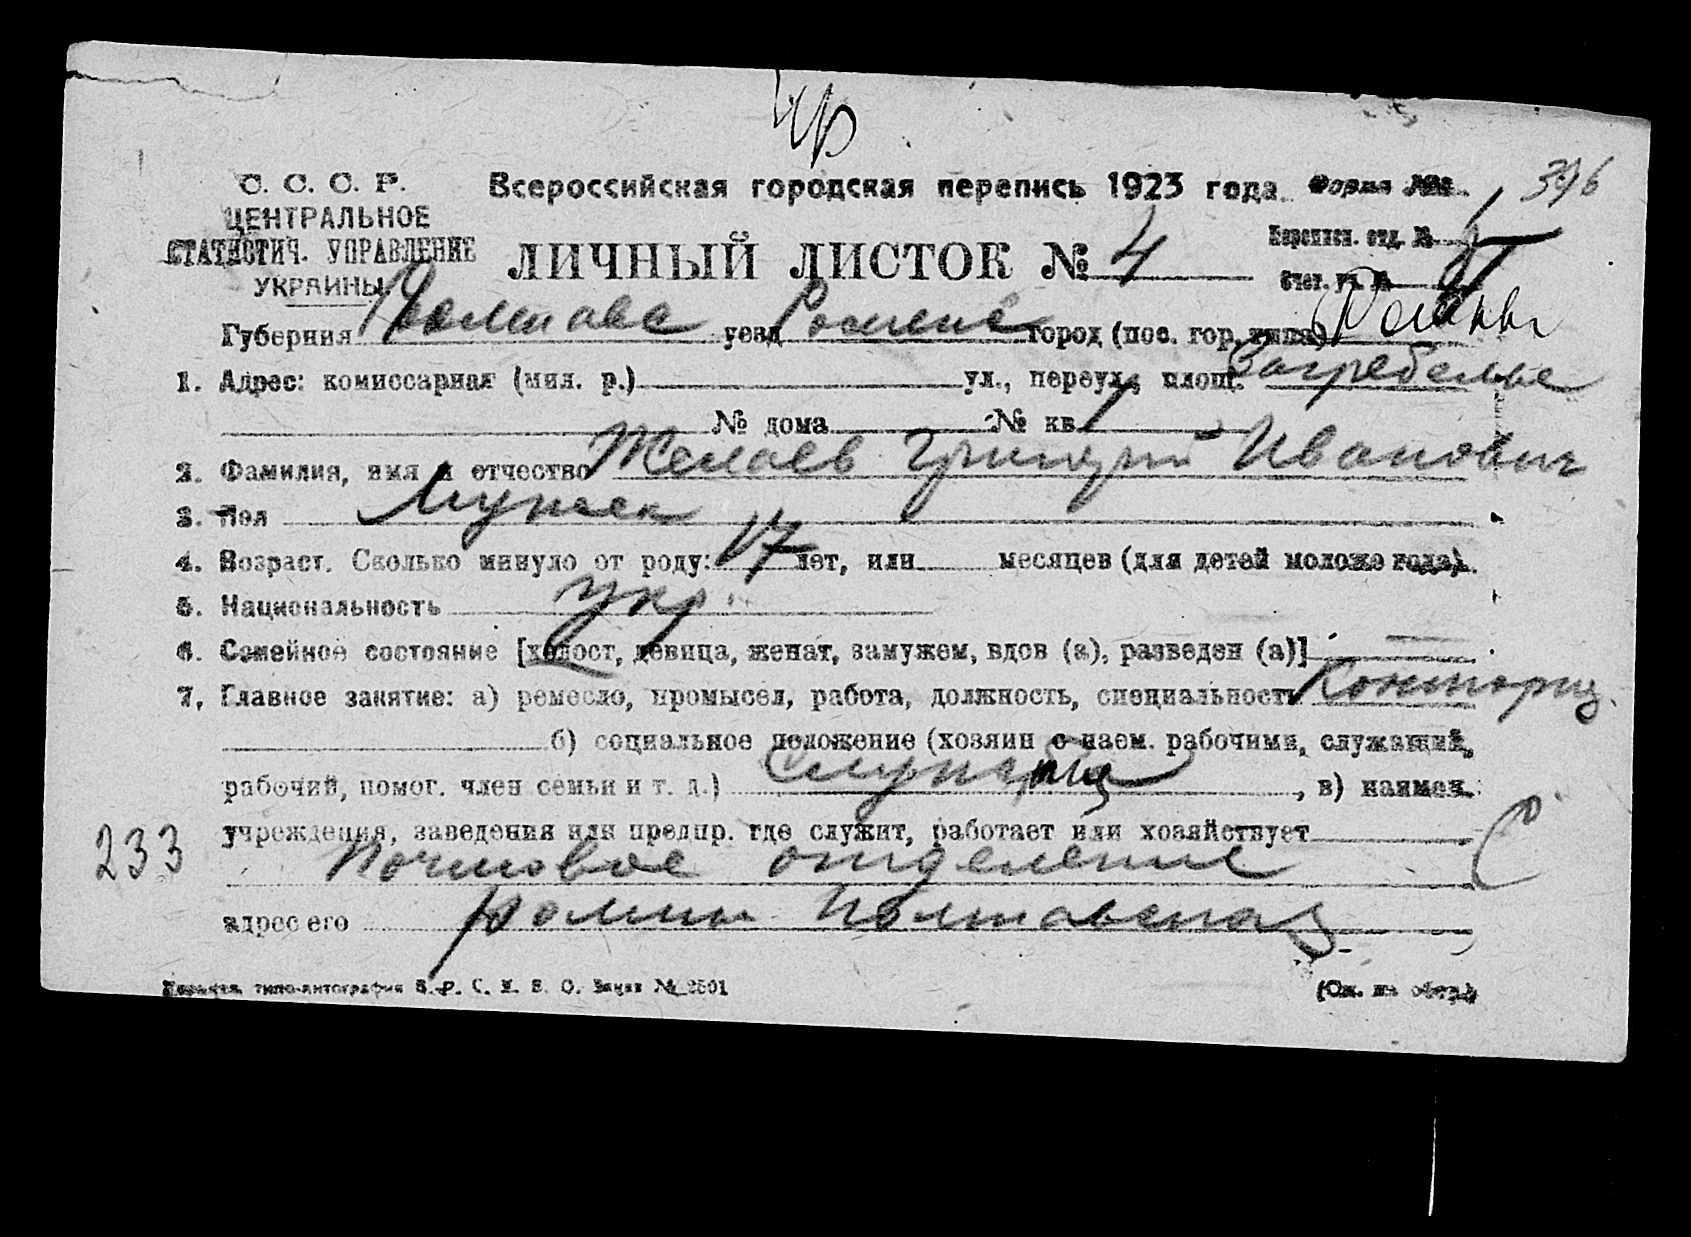 Ур
С. С. С. Р.
Всероссийская городская перепись 1923 года. Форма №
396
ЦЕНТРАЛЬНОЕ
СТАТИСТИЧ. УПРАВЛЕНИЕ
УКРАИНЫ
ЛИЧНЫЙ ЛИСТОК № 4
Переписн. отд. №
Счет. уч. №
Губерния Полтавс уезд Роменс город (пос. гор. типа) Ромны
1. Адрес: комиссариат (мил. р.) ул., переул., площ. Загребелье
№ дома № кв. 1
2. Фамилия, имя и отчество Григорий Иванович
3. Пол Мужск
4. Возраст. Сколько минуло от роду: 17 лет, или месяцев (для детей моложе года).
5. Национальность укр.
6. Семейное состояние [холост, девица, женат, замужем, вдов (а), разведен (а)]
7. Главное занятие: а) ремесло, промысел, работа, должность, специальность Конторщ.
б) социальное положение (хозяин с наем. рабочими, служащий,
рабочий, помог. член семьи и т. д.) , в) наимен.
учреждения, заведения или предпр. где служит, работает или хозяйствует
233 Почтовое отделение
адрес его Ромны Полтавской
типо-литография Заказ № 2501
(См. на обор.)